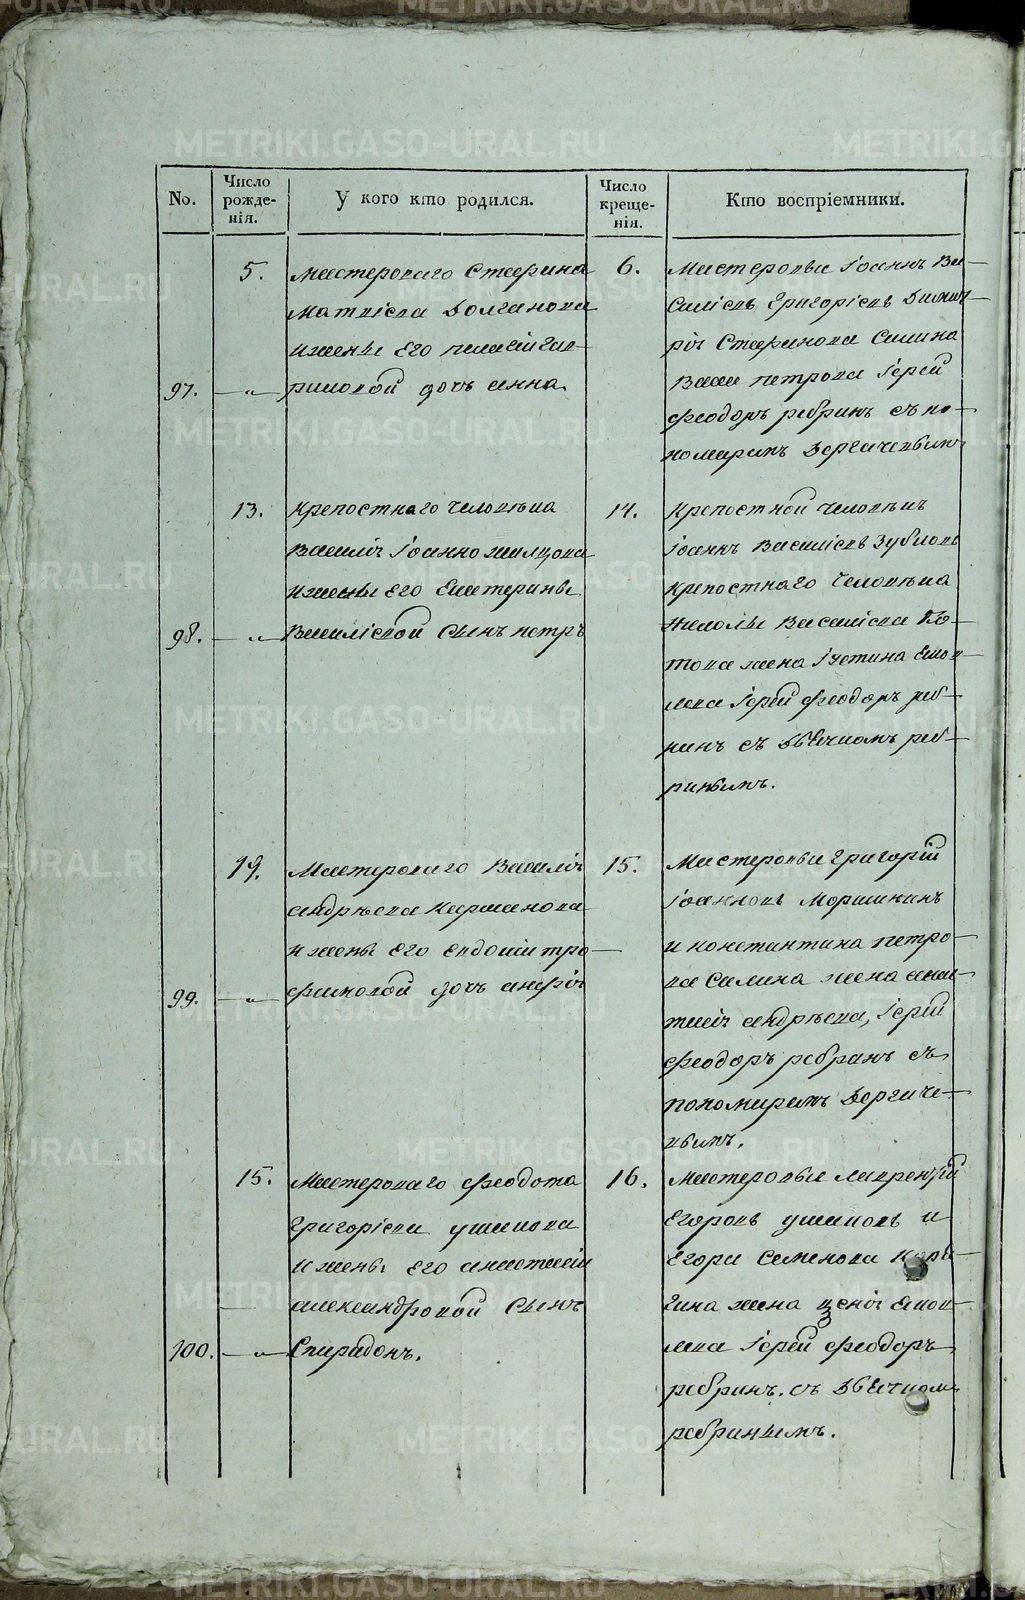 No.
Число рожде-нія.
У кого кто родился.
Число креще-нія.
Кто воспріемники.
97.
5.
Мастероваго Стефана
Матвіева Долганова
и жены его Пелагіи Гав-
риловой дочь Анна.
6.
Мастеровые Іоаннъ Ва-
силіевъ, Григоріевъ Димит-
рія Стефанова Силина
Петрова Іерей
Феодоръ Ребринъ съ по-
номаремъ Дергачевымъ
98.
13.
Крепостнаго человѣка
Василія Іоаннова
и жены его Екатерины
Василіевой сынъ Петръ
14.
Крепостной человѣкъ
Іоаннъ Василіевъ Зубловъ
крепостнаго человѣка
Николы Василіева
това жена Іустина Іаков-
лева Іерей Феодоръ Реб-
ринъ съ дьячкомъ Реб-
ринымъ.
99.
19.
Мастероваго Василія
Андрѣева Карманова
и жены его Евдокіи Тро-
фимовой дочь
15.
Мастеровые Григорій
Іоанновъ Моршининъ
и Константина Петро-
ва Силина жена Анас-
тасія Андрѣева, Іерей
Феодоръ Ребринъ съ
пономаремъ Дергаче-
вымъ.
100.
15.
Мастероваго Феодота
Григоріева Ушакова
и жены его Анастасіи
Александровой сынъ
Спиридонъ.
16.
Мастеровые Лаврентій
Егоровъ Ушаковъ и
Егора Семенова
гина жена Ксенія Іаков-
лева Іерей Феодоръ
Ребринъ. съ дьячкомъ
Ребринымъ.
METRIKI.GASO-URAL.RU